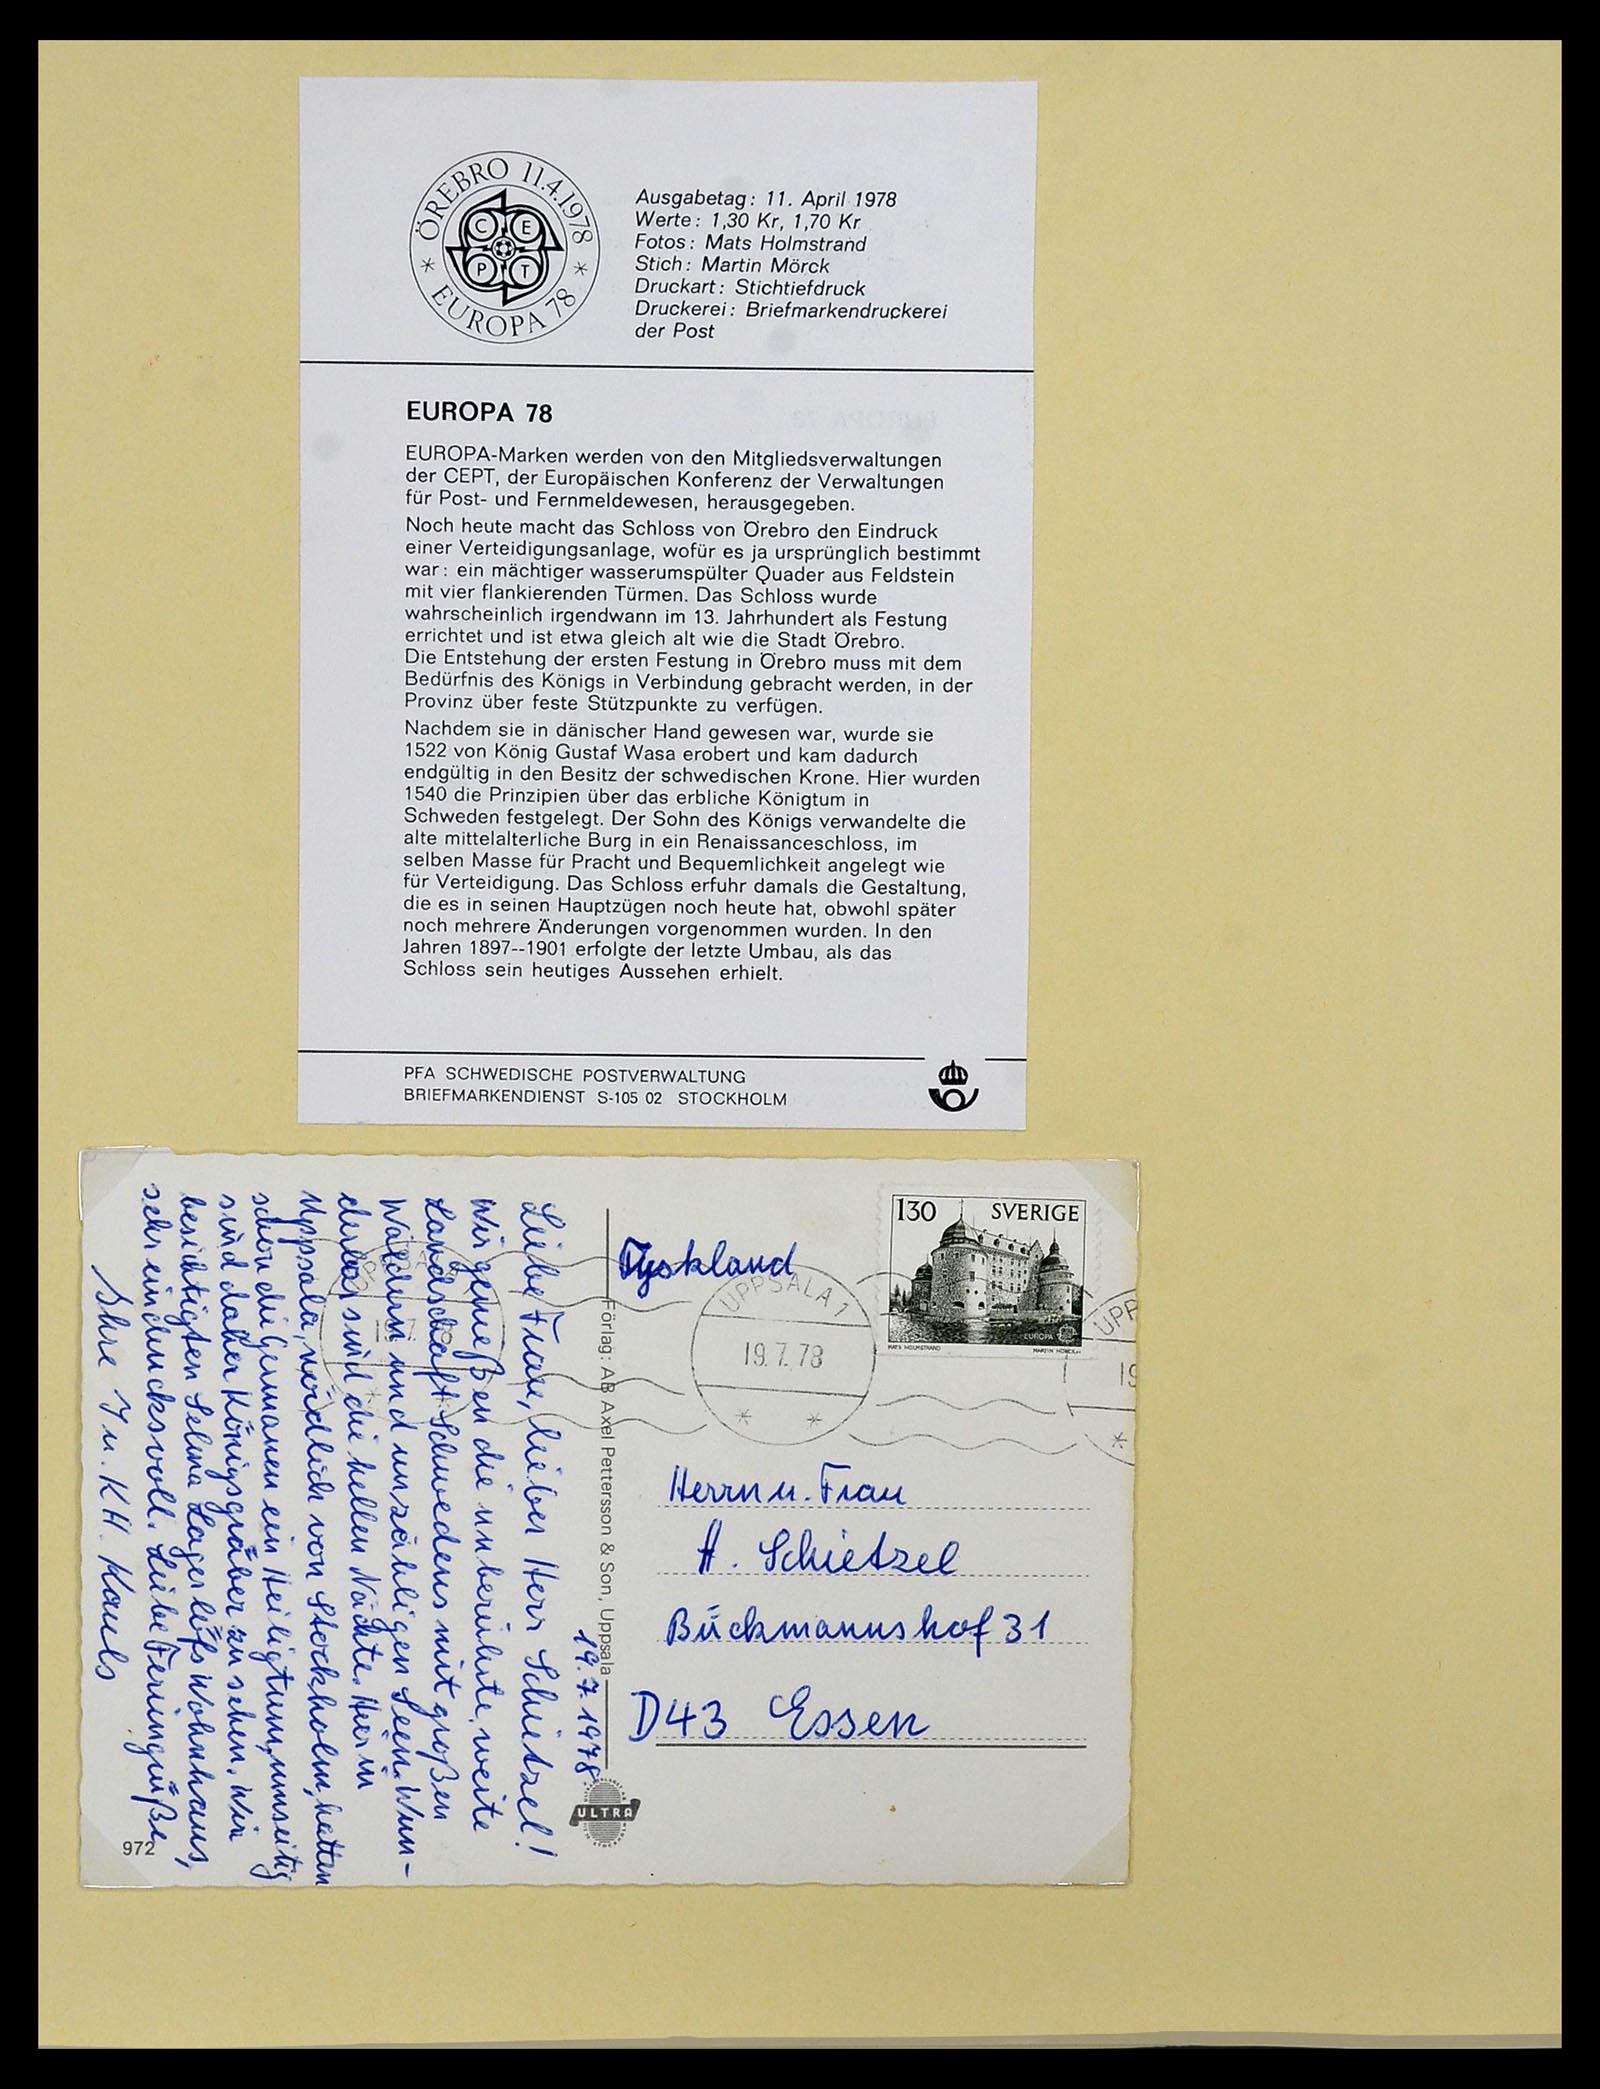 ÖREBRO 11.4.1978
C E P T
* EUROPA 78 *
Ausgabetag: 11. April 1978
Werte: 1,30 Kr, 1,70 Kr
Fotos: Mats Holmstrand
Stich: Martin Mörck
Druckart: Stichtiefdruck
Druckerei: Briefmarkendruckerei
der Post
EUROPA 78
EUROPA-Marken werden von den Mitgliedsverwaltungen
der CEPT, der Europäischen Konferenz der Verwaltungen
für Post- und Fernmeldewesen, herausgegeben.
Noch heute macht das Schloss von Örebro den Eindruck
einer Verteidigungsanlage, wofür es ja ursprünglich bestimmt
war: ein mächtiger wasserumspülter Quader aus Feldstein
mit vier flankierenden Türmen. Das Schloss wurde
wahrscheinlich irgendwann im 13. Jahrhundert als Festung
errichtet und ist etwa gleich alt wie die Stadt Örebro.
Die Entstehung der ersten Festung in Örebro muss mit dem
Bedürfnis des Königs in Verbindung gebracht werden, in der
Provinz über feste Stützpunkte zu verfügen.
Nachdem sie in dänischer Hand gewesen war, wurde sie
1522 von König Gustaf Wasa erobert und kam dadurch
endgültig in den Besitz der schwedischen Krone. Hier wurden
1540 die Prinzipien über das erbliche Königtum in
Schweden festgelegt. Der Sohn des Königs verwandelte die
alte mittelalterliche Burg in ein Renaissanceschloss, im
selben Masse für Pracht und Bequemlichkeit angelegt wie
für Verteidigung. Das Schloss erfuhr damals die Gestaltung,
die es in seinen Hauptzügen noch heute hat, obwohl später
noch mehrere Änderungen vorgenommen wurden. In den
Jahren 1897--1901 erfolgte der letzte Umbau, als das
Schloss sein heutiges Aussehen erhielt.
PFA SCHWEDISCHE POSTVERWALTUNG
BRIEFMARKENDIENST S-105 02 STOCKHOLM
19.7.1978.
Liebe Frau, lieber Herr Schietzel!
Wir genießen die unberührte, weite
Landschaft Schwedens mit großen
Wäldern und unzähligen Seen. Wun-
derbar sind die hellen Nächte. Hier in
Uppsala, nördlich von Stockholm, hatten
schon die Germanen ein Heiligtum, umseitig
sind daher Königsgräber zu sehen. Wir
besichtigten Selma Lagerlöfs Wohnhaus,
sehr eindrucksvoll. Liebe Feriengrüße
Ihre I u. KH. Kauls
972
Förlag: AB Axel Pettersson & Son, Uppsala
ULTRA
Tyskland
130 SVERIGE
EUROPA
MATS HOLMSTRAND MARTIN MÖRCK
UPPSALA 1
19.7.78
UPPSALA
19.7.78
UPP
19
Herrn u. Frau
H. Schietzel
Bückmannshof 31
D43 Essen